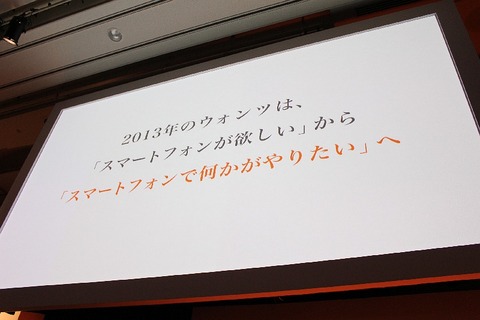 2013年のウォンツは、
「スマートフォンが欲しい」から
「スマートフォンで何かがやりたい」へ